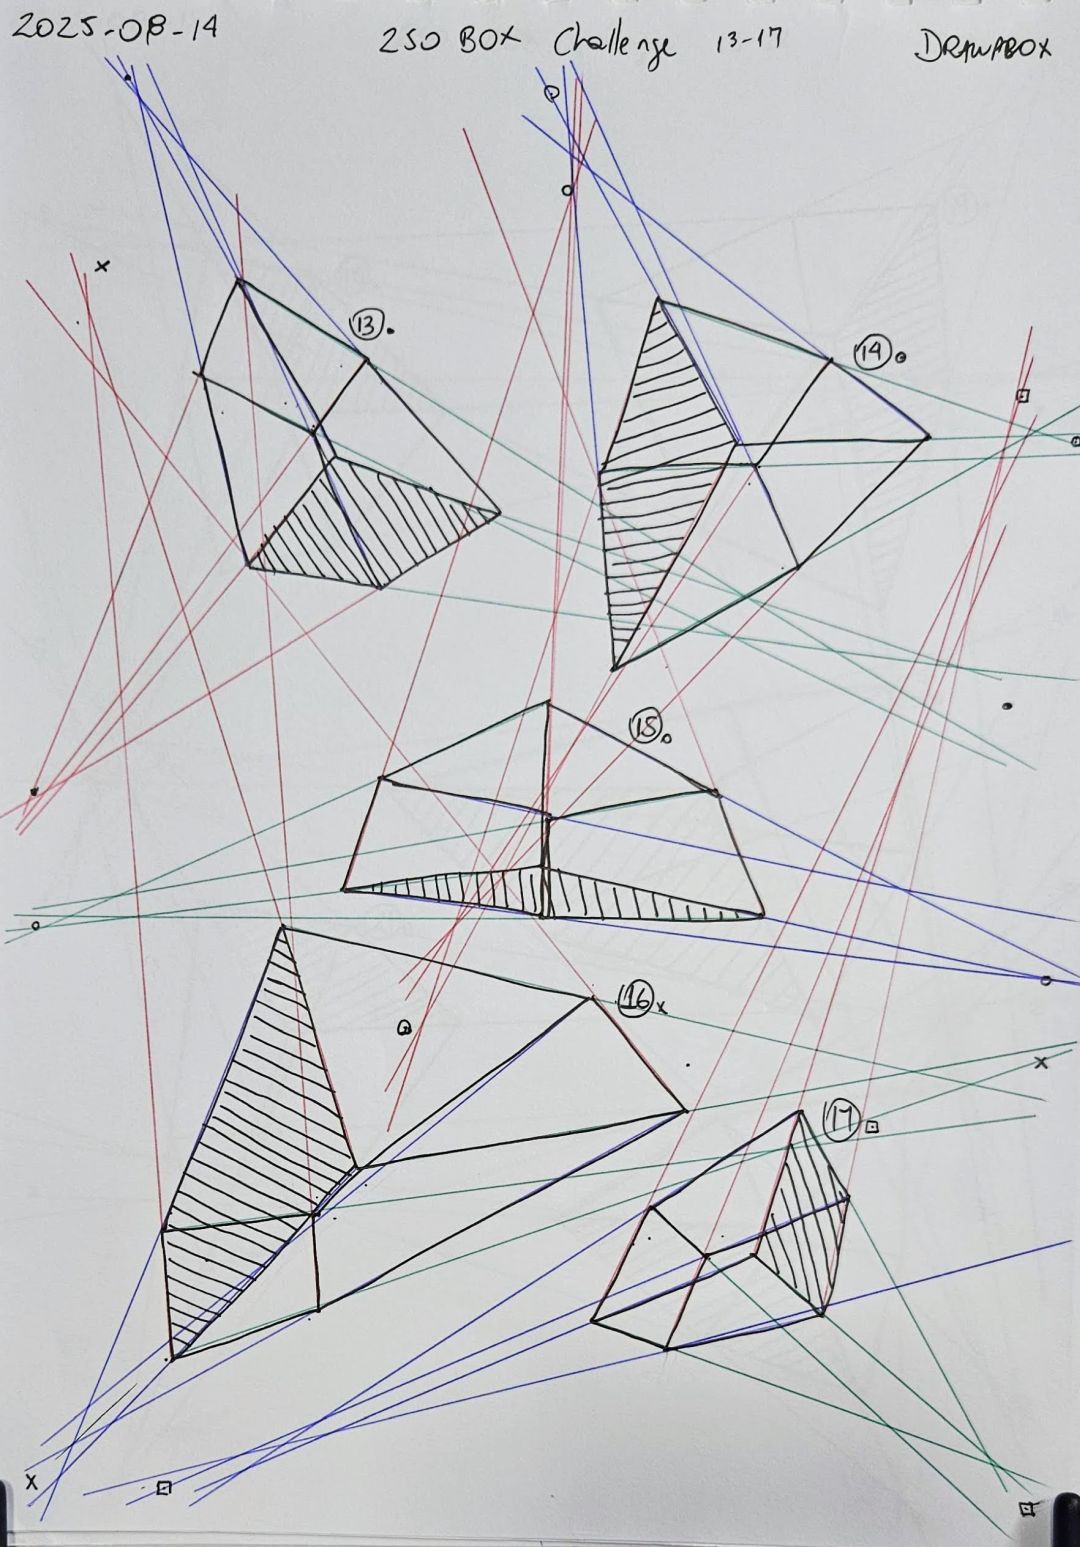 2025-08-14
250 BOX Challenge 13-17
DRAWABOX
13
14
15
16
17